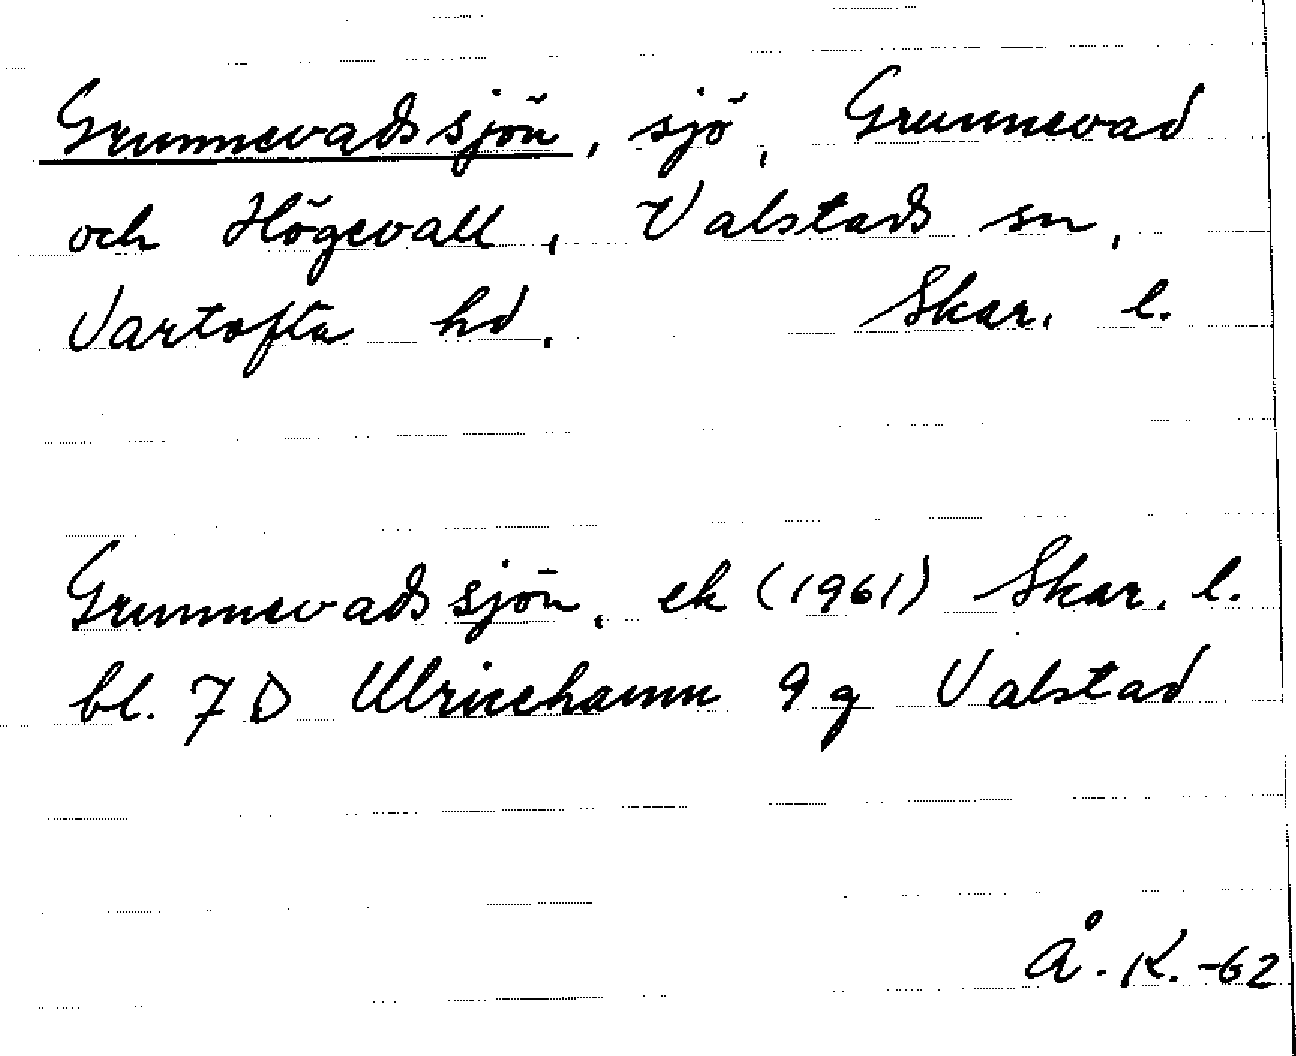 Grunnevadssjön, sjö, Grunnevad
och Högevall, Valstads sn,
Vartofta hd. Skar. l.
Grunnevadssjön, ek (1961) Skar. l.
bl. 7 D Ulricehamn 9 g Valstad
Å. K. -62